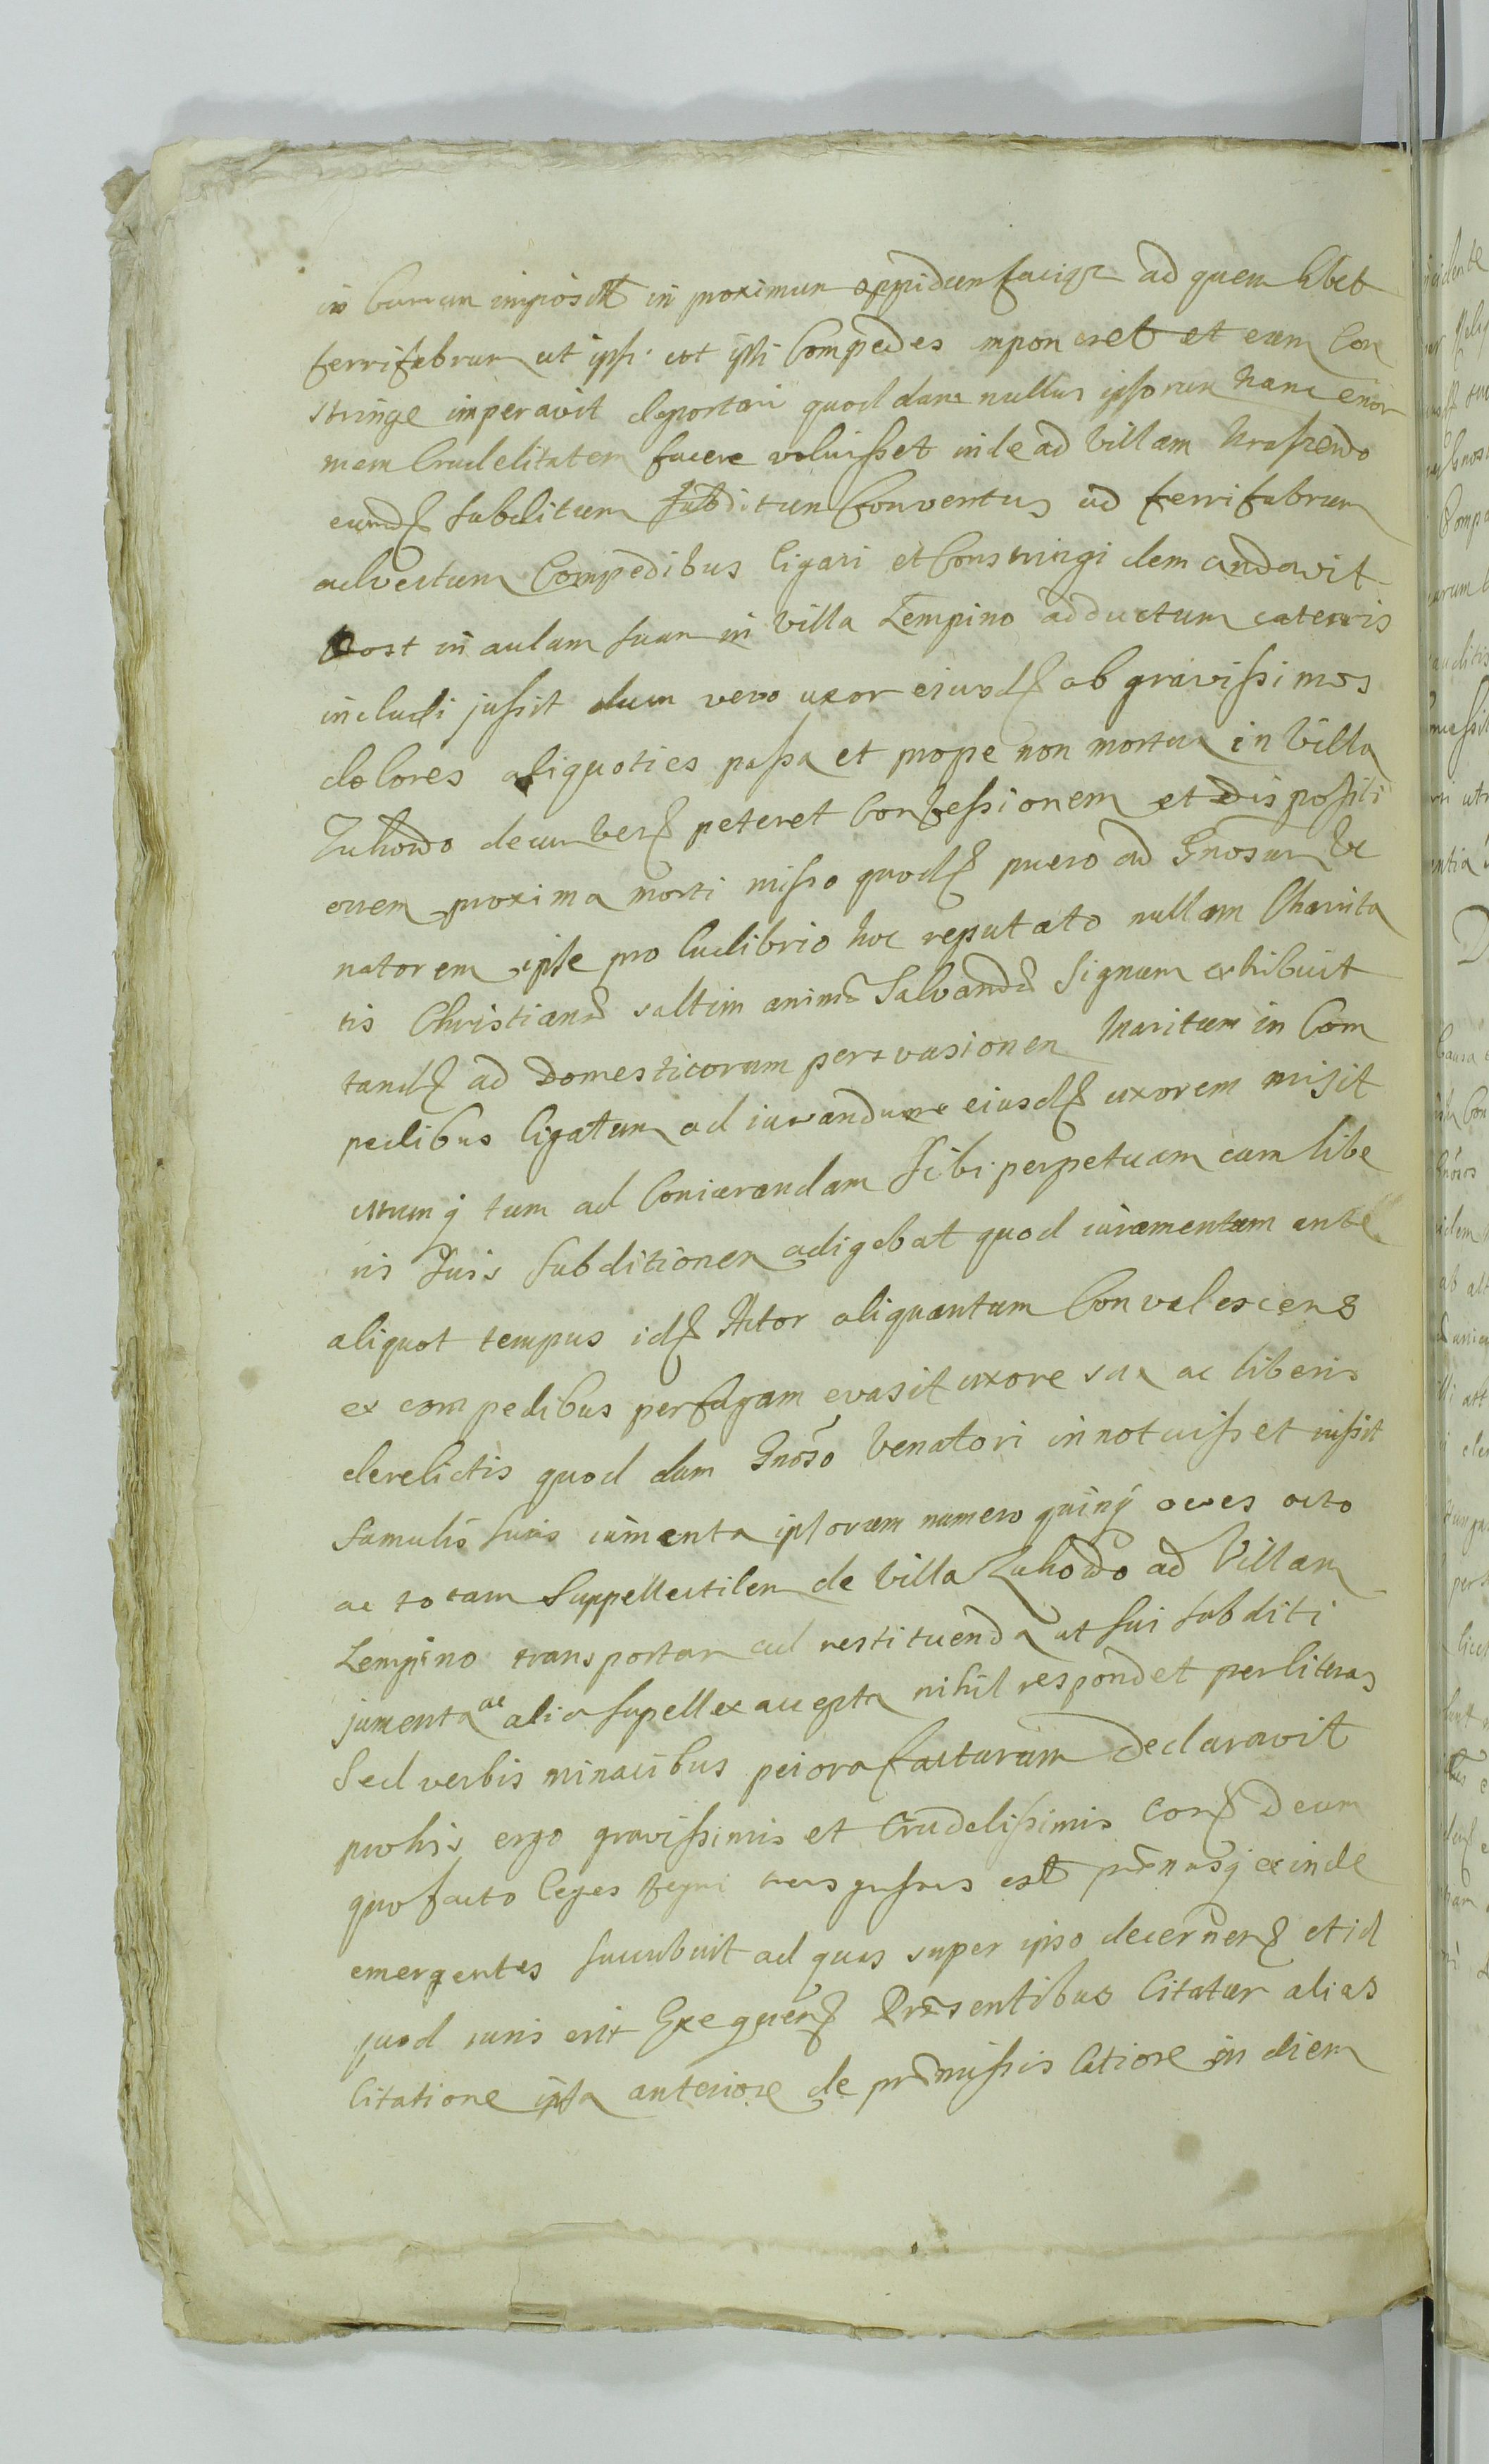 in currum imposit in proximum oppidum ad quem libet
ferrifabrum ut ipsi ut ipsi Compedes imponeret et eum Con
stringe imperavit deportari quod dum nullus ipsorum hanc enor
mem Crudelitatem facere voluisset inde ad Villam
eund subditum subditum Conventus ad ferrifabrum
advectum Compedibus ligari et Constringi demandavit
Post in aulam suam in Villa Lempino adductum catenis
includi jussit dum vero uxor eiusd ob gravissimos
dolores aliquoties passa et prope non mortua in Villa
Zukowo decumbens peteret Confessionem et dispositi
onem proxima morti misso quod puero ad Gnosum Ve
natorem ipse pro ludibrio hoc reputato nullam Charita
tis Christianæ saltim animæ Salvandæ Signum exhibuit
tand ad Domesticorum persvasionem Maritum in Com
pedibus ligatum ad iuvandum eiusd uxorem misit
utrumq tum ad Coniurandam sibi perpetuam cum libe
ris suis subditionem adigebat quod iuramentum ante
aliquot tempus id Actor aliquantum Convalescens
ex compedibus per fugam evasit uxore sua ac liberis
derelictis quod dum Gnoso Venatori innotuisset iussit
famulis suis iumenta ipsorum numero quinq oves octo
ac totam Suppellectilem de Villa Zukowo ad Villam
Lempino transportari ad restituenda ut sui subditi
jumenta ac alia supellex accepta nihil respondet per literas
Sed verbis minacibus peiora facturum declaravit
pro his ergo gravissimis et Crudelissimis Deum
quo facto leges Regni transgressus est pœnasq exinde
emergentes succubuit ad quas super ipso decernen et id
quod iuris erit Exequen Præsentibus Citatur alias
Citatione ista anteriore de præmissis latiore in diem